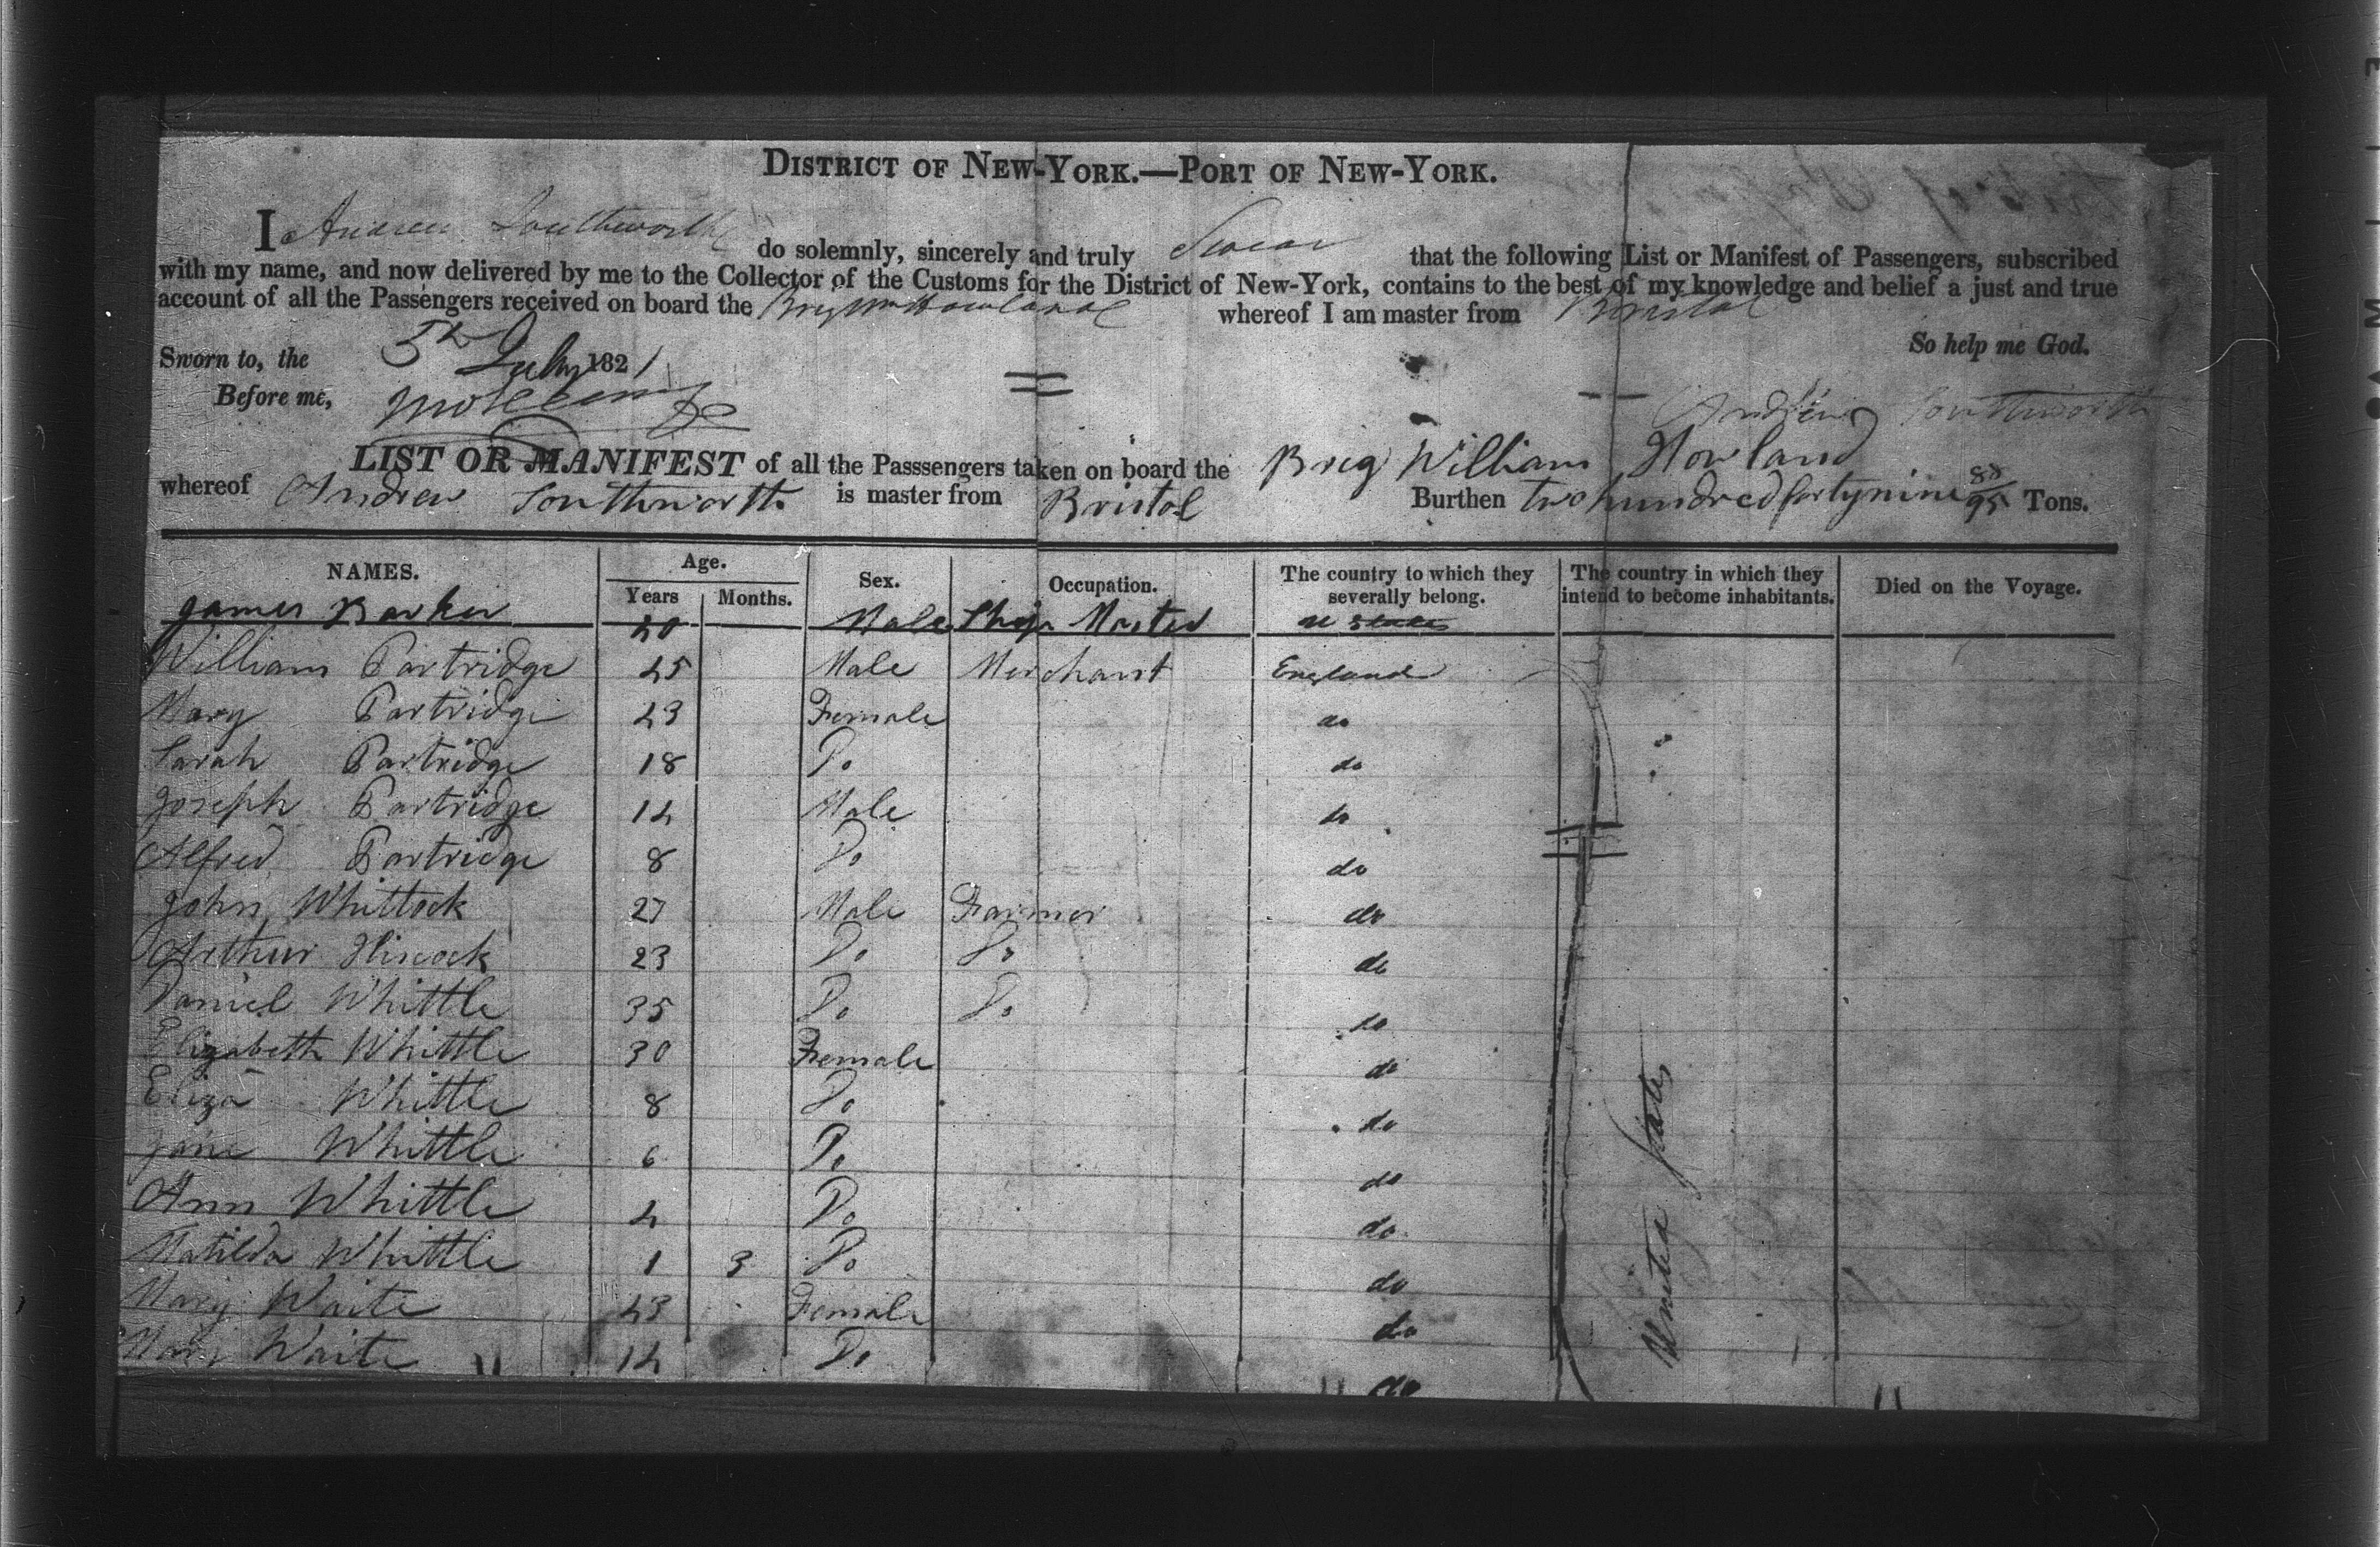 DISTRICT OF NEW-YORK.—PORT OF NEW-YORK.
I Andrew Southworth do solemnly, sincerely and truly Swear that the following List or Manifest of Passengers, subscribed
with my name, and now delivered by me to the Collector of the Customs for the District of New-York, contains to the best of my knowledge and belief a just and true
account of all the Passengers received on board the Brig Wm Howland whereof I am master from Bristol
So help me God.
Sworn to, the 5th July 1821
Before me,
Andrew Southworth
LIST OR MANIFEST of all the Passsengers taken on board the Brig William Howland
whereof Andrew Southworth is master from Bristol Burthen two hundred forty nine 88/95 Tons.
NAMES. Age. Years Months. Sex. Occupation. The country to which they severally belong. The country in which they intend to become inhabitants. Died on the Voyage.
James Barker 20 Male Ship Master U States
William Partridge 25 Male Merchant England
Mary Partridge 23 Female do
Sarah Partridge 18 Do do
Joseph Partridge 12 Male do
Alfred Partridge 8 Do do
John Whittock 27 Male Farmer do
Arthur Hiscock 23 Do Do do
Daniel Whittle 35 Do Do do
Elizabeth Whittle 30 Female do
Eliza Whittle 8 Do do
Jane Whittle 6 Do do
Ann Whittle 2 Do do
Matilda Whittle 1 3 Do do
Mary Waite 23 Female do
Mary Waite 12 Do do
United States